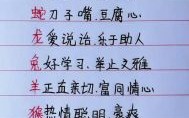 蛇刀子嘴、豆腐心
龙爱说话、乐于助人
兔好学习、举止文雅
羊正直亲切、富同情心
猴热情聪明、豪爽